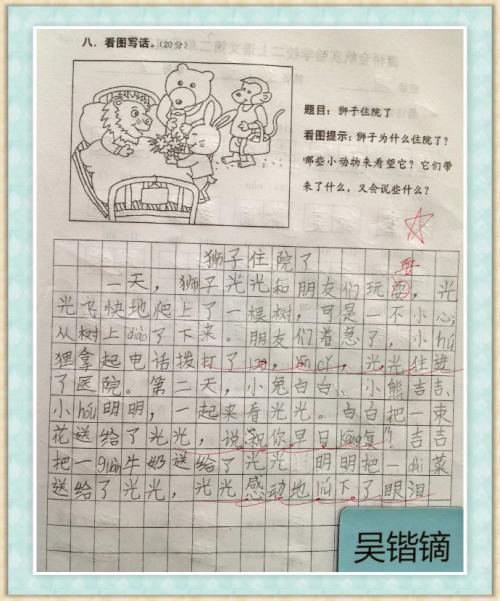 八、看图写话。(20分)
题目：狮子住院了
看图提示：狮子为什么住院了？
哪些小动物来看望它？它们带
来了什么，又会说些什么？
狮子住院了
一天，狮子光光和朋友们玩耍，光
光飞快地爬上了一棵树，可是一不小心，
从树上diào了下来。朋友们着急了，小hú
狸拿起电话拨打了120，光光住进
了医院。第二天，小兔白白、小熊吉吉、
小hóu明明，一起来看光光。白白把一束
花送给了光光，说：祝你早日kāng复！吉吉
把一guàn牛奶送给了光光，明明把一dài菜
送给了光光，光光感动地liú下了眼泪
吴锴镝